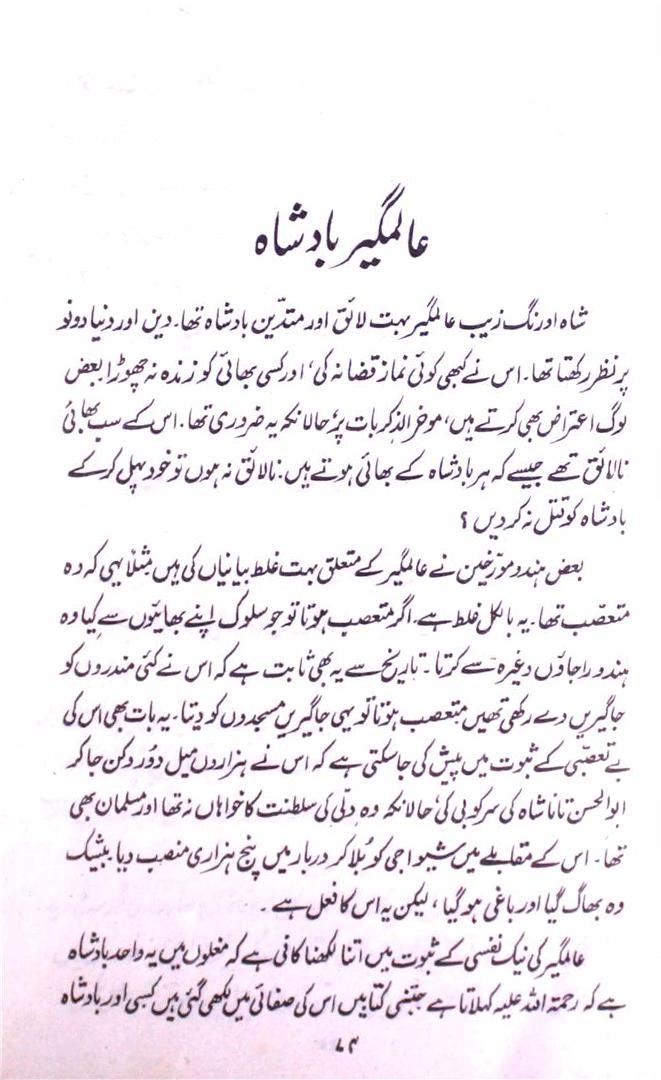 عالمگیر بادشاہ
شاہ اورنگ زیب عالمگیر بہت لائق اور متدّین بادشاہ تھا۔ دین اور دنیا دونو
پر نظر رکھتا تھا۔ اس نے کبھی کوئی نماز قضا نہ کی، اور کسی بھائی کو زندہ نہ چھوڑا بعض
لوگ اعتراض بھی کرتے ہیں، موخر الذکر بات پر، حالانکہ یہ ضروری تھا۔ اس کے سب بھائی
نالائق تھے جیسے کہ ہر بادشاہ کے بھائی ہوتے ہیں۔ نالائق نہ ہوں تو خود پہل کر کے
بادشاہ کو قتل نہ کر دیں ؟
بعض ہندو مورّخین نے عالمگیر کے متعلق بہت غلط بیانیاں کی ہیں مثلاً یہی کہ وہ
متعصّب تھا۔ یہ بالکل غلط ہے۔ اگر متعصب ہوتا تو جو سلوک اپنے بھائیوں سے کیا وہ
ہندو راجاؤں وغیرہ سے کرتا۔ تاریخ سے یہ بھی ثابت ہے کہ اس نے کئی مندروں کو
جاگیریں دے رکھی تھیں متعصب ہوتا تو یہی جاگیریں مسجدوں کو دیتا۔ یہ بات بھی اس کی
بے تعصّبی کے ثبوت میں پیش کی جاسکتی ہے کہ اس نے ہزاروں میل دُور دکن جا کر
ابوالحسن تاناشاہ کی سرکوبی کی، حالانکہ وہ دِلّی کی سلطنت کا خواہاں نہ تھا اور مسلمان بھی
تھا۔ اس کے مقابلے میں شیواجی کو بُلا کر دربار میں پنج ہزاری منصب دیا۔ بیشک
وہ بھاگ گیا اور باغی ہو گیا، لیکن یہ اس کا فعل ہے۔
عالمگیر کی نیک نفسی کے ثبوت میں اتنا لکھنا کافی ہے کہ مغلوں میں یہ واحد بادشاہ
ہے کہ رحمۃ اللہ علیہ کہلاتا ہے جتنی کتابیں اس کی صفائی میں لکھی گئی ہیں کسی اور بادشاہ
۷۴